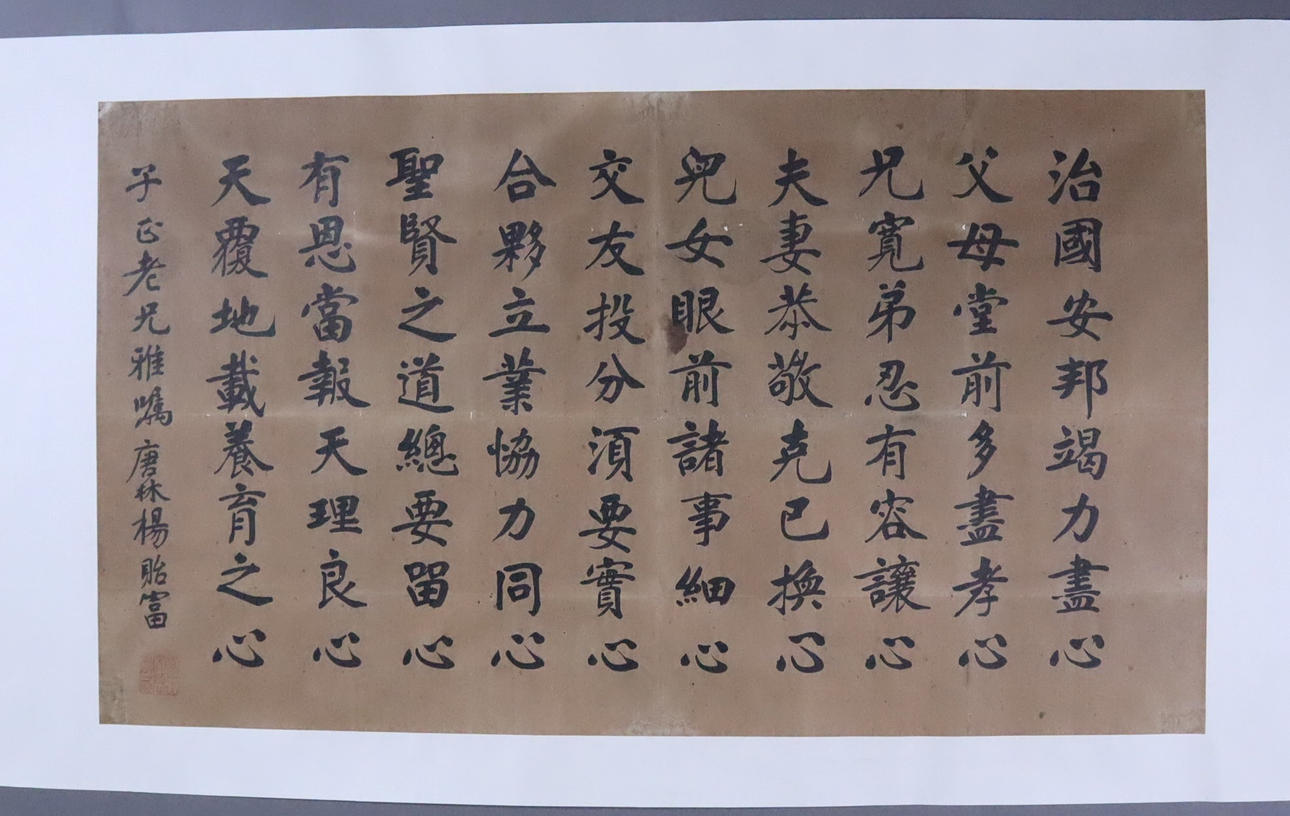 治國安邦竭力盡心
父母堂前多盡孝心
兄寬弟忍有容讓心
夫妻恭敬克己換心
兒女眼前諸事細心
交友投分須要實心
合夥立業協力同心
聖賢之道總要留心
有恩當報天理良心
天覆地載養育之心
子正老兄雅嘱唐林楊貽富